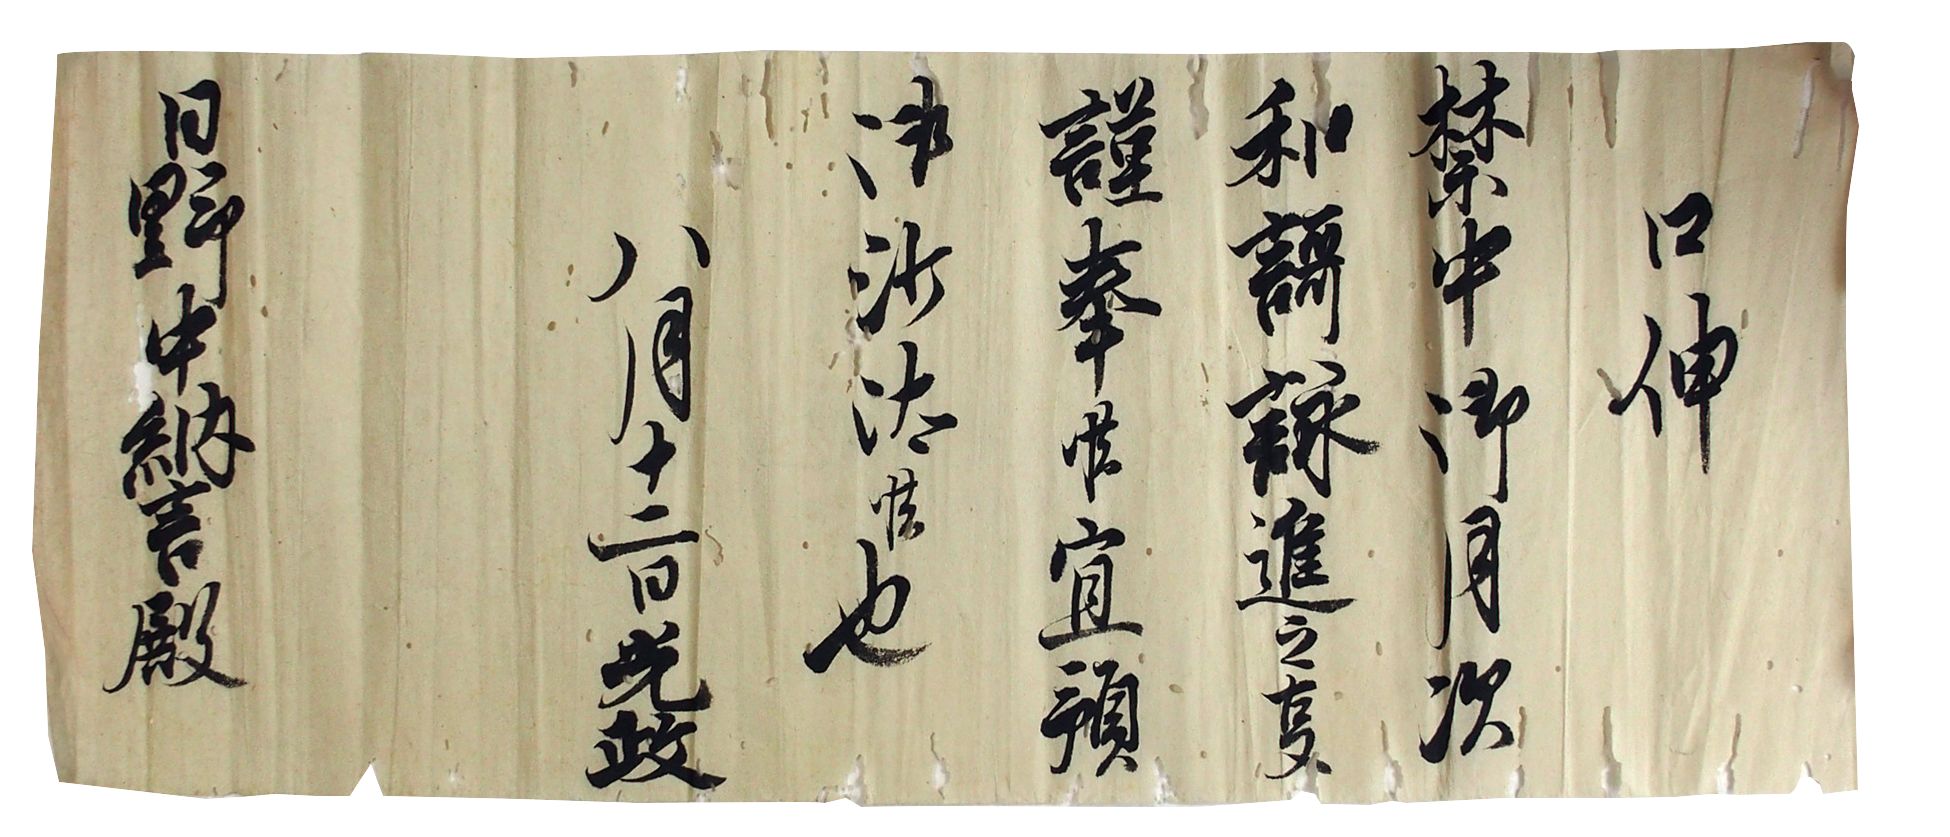 口伸
禁中御月次
和謌詠進之事
謹奉候宜預
御沙汰候也
八月十二日光政
日野中納言殿